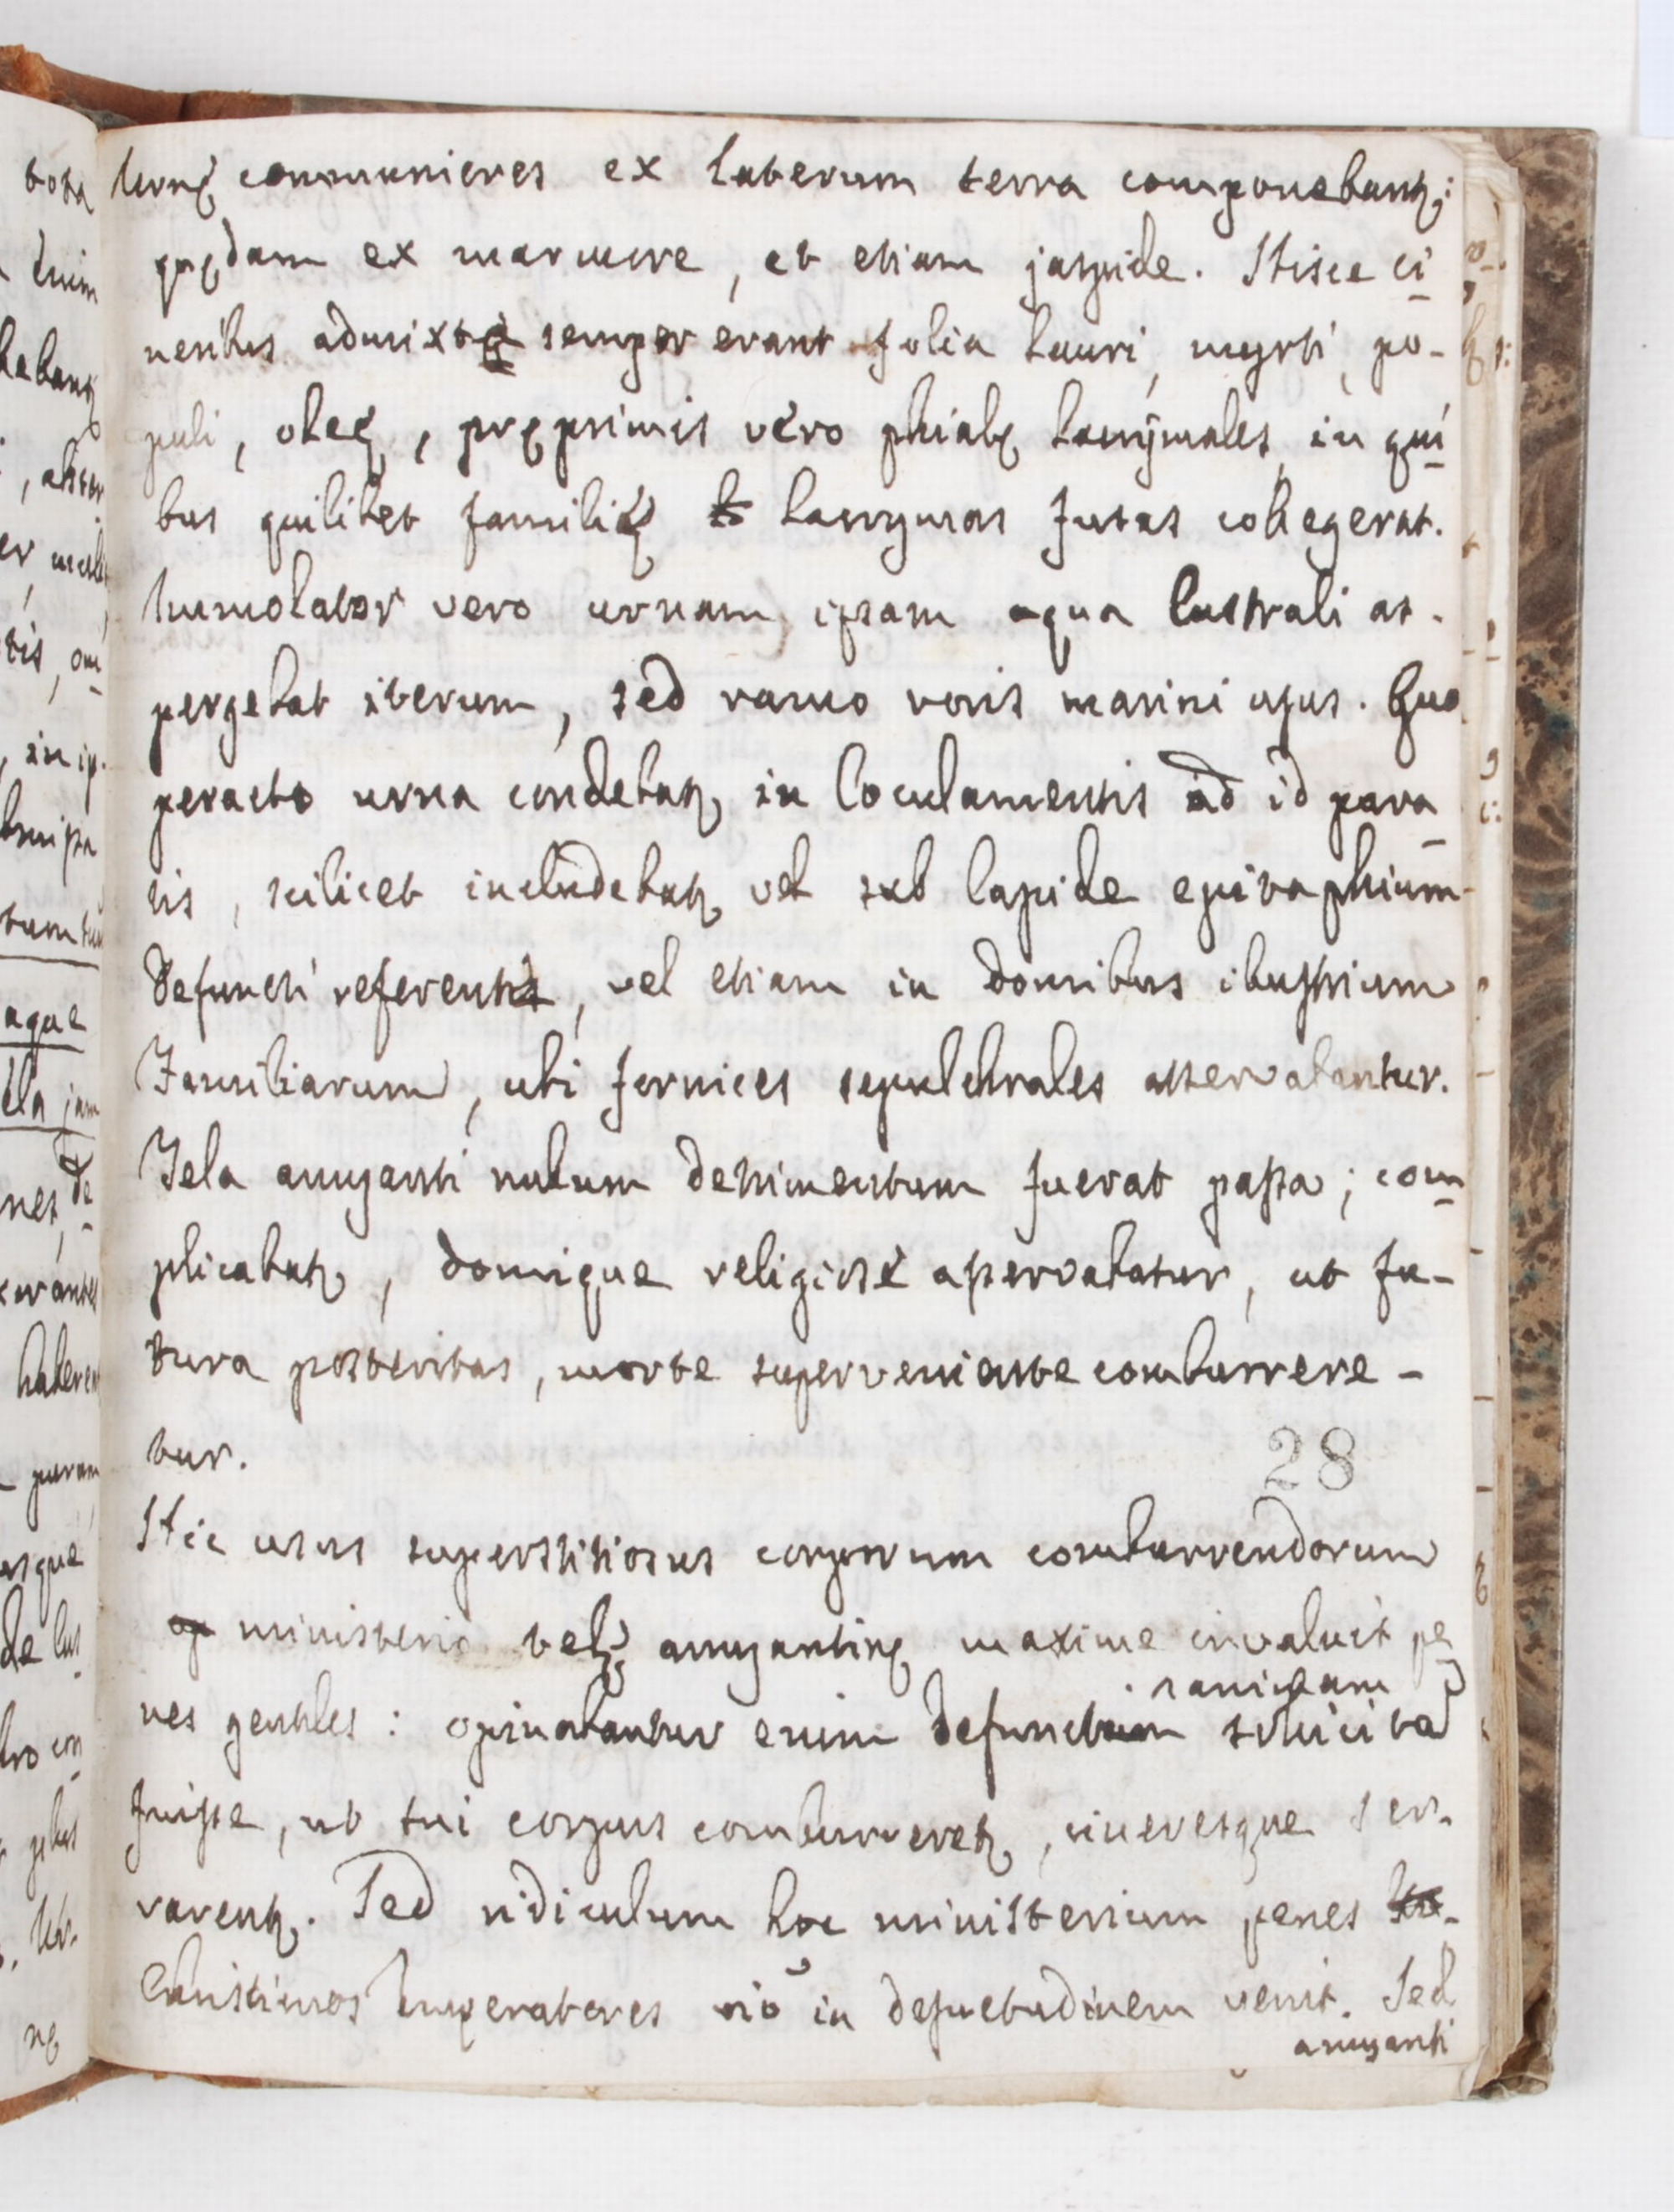 Urnę communiores ex laterum terra componebantꝫ:
quędam ex marmore, et etiam jaspide. Hisce ci
neribus admixta semper erant folia lauri, myrti, po-
puli, oleę, pręprimis vero phialę lacrymales, in qui
bus quilibet familię lacrymas fusas collegerat.
Humolator vero urnam ipsam aqua lustrali as-
pergebat iterum, sed ramo roris marini usus. Quo
peracto urna condebatꝫ in loculamentis ad id para
tis, scilicet includebatꝫ vel sub lapide epitaphium
defuncti referentis, vel etiam in domibus illustrium
Familiarum, ubi fornices sepulchrales asservabantur.
Tela amyanti nulum detrimentum fuerat passa; com
plicabatꝫ, domique religiosè asservabatur, ut fu-
tura posteritas, morte superveniente comburrere-
tur.
28
Hic usus superstitiosus corporum comburrendorum
ministerio telę amyantinę maxime invaluit pe
nes gentiles: opinabantur enim defunctam
fuisse, ut sui corpus comburreretꝫ, cineresque ser-
varentꝫ. Sed ridiculum hoc ministerium penes
Christianos Imperatores in desuetudinem venit. Sed
amyanti